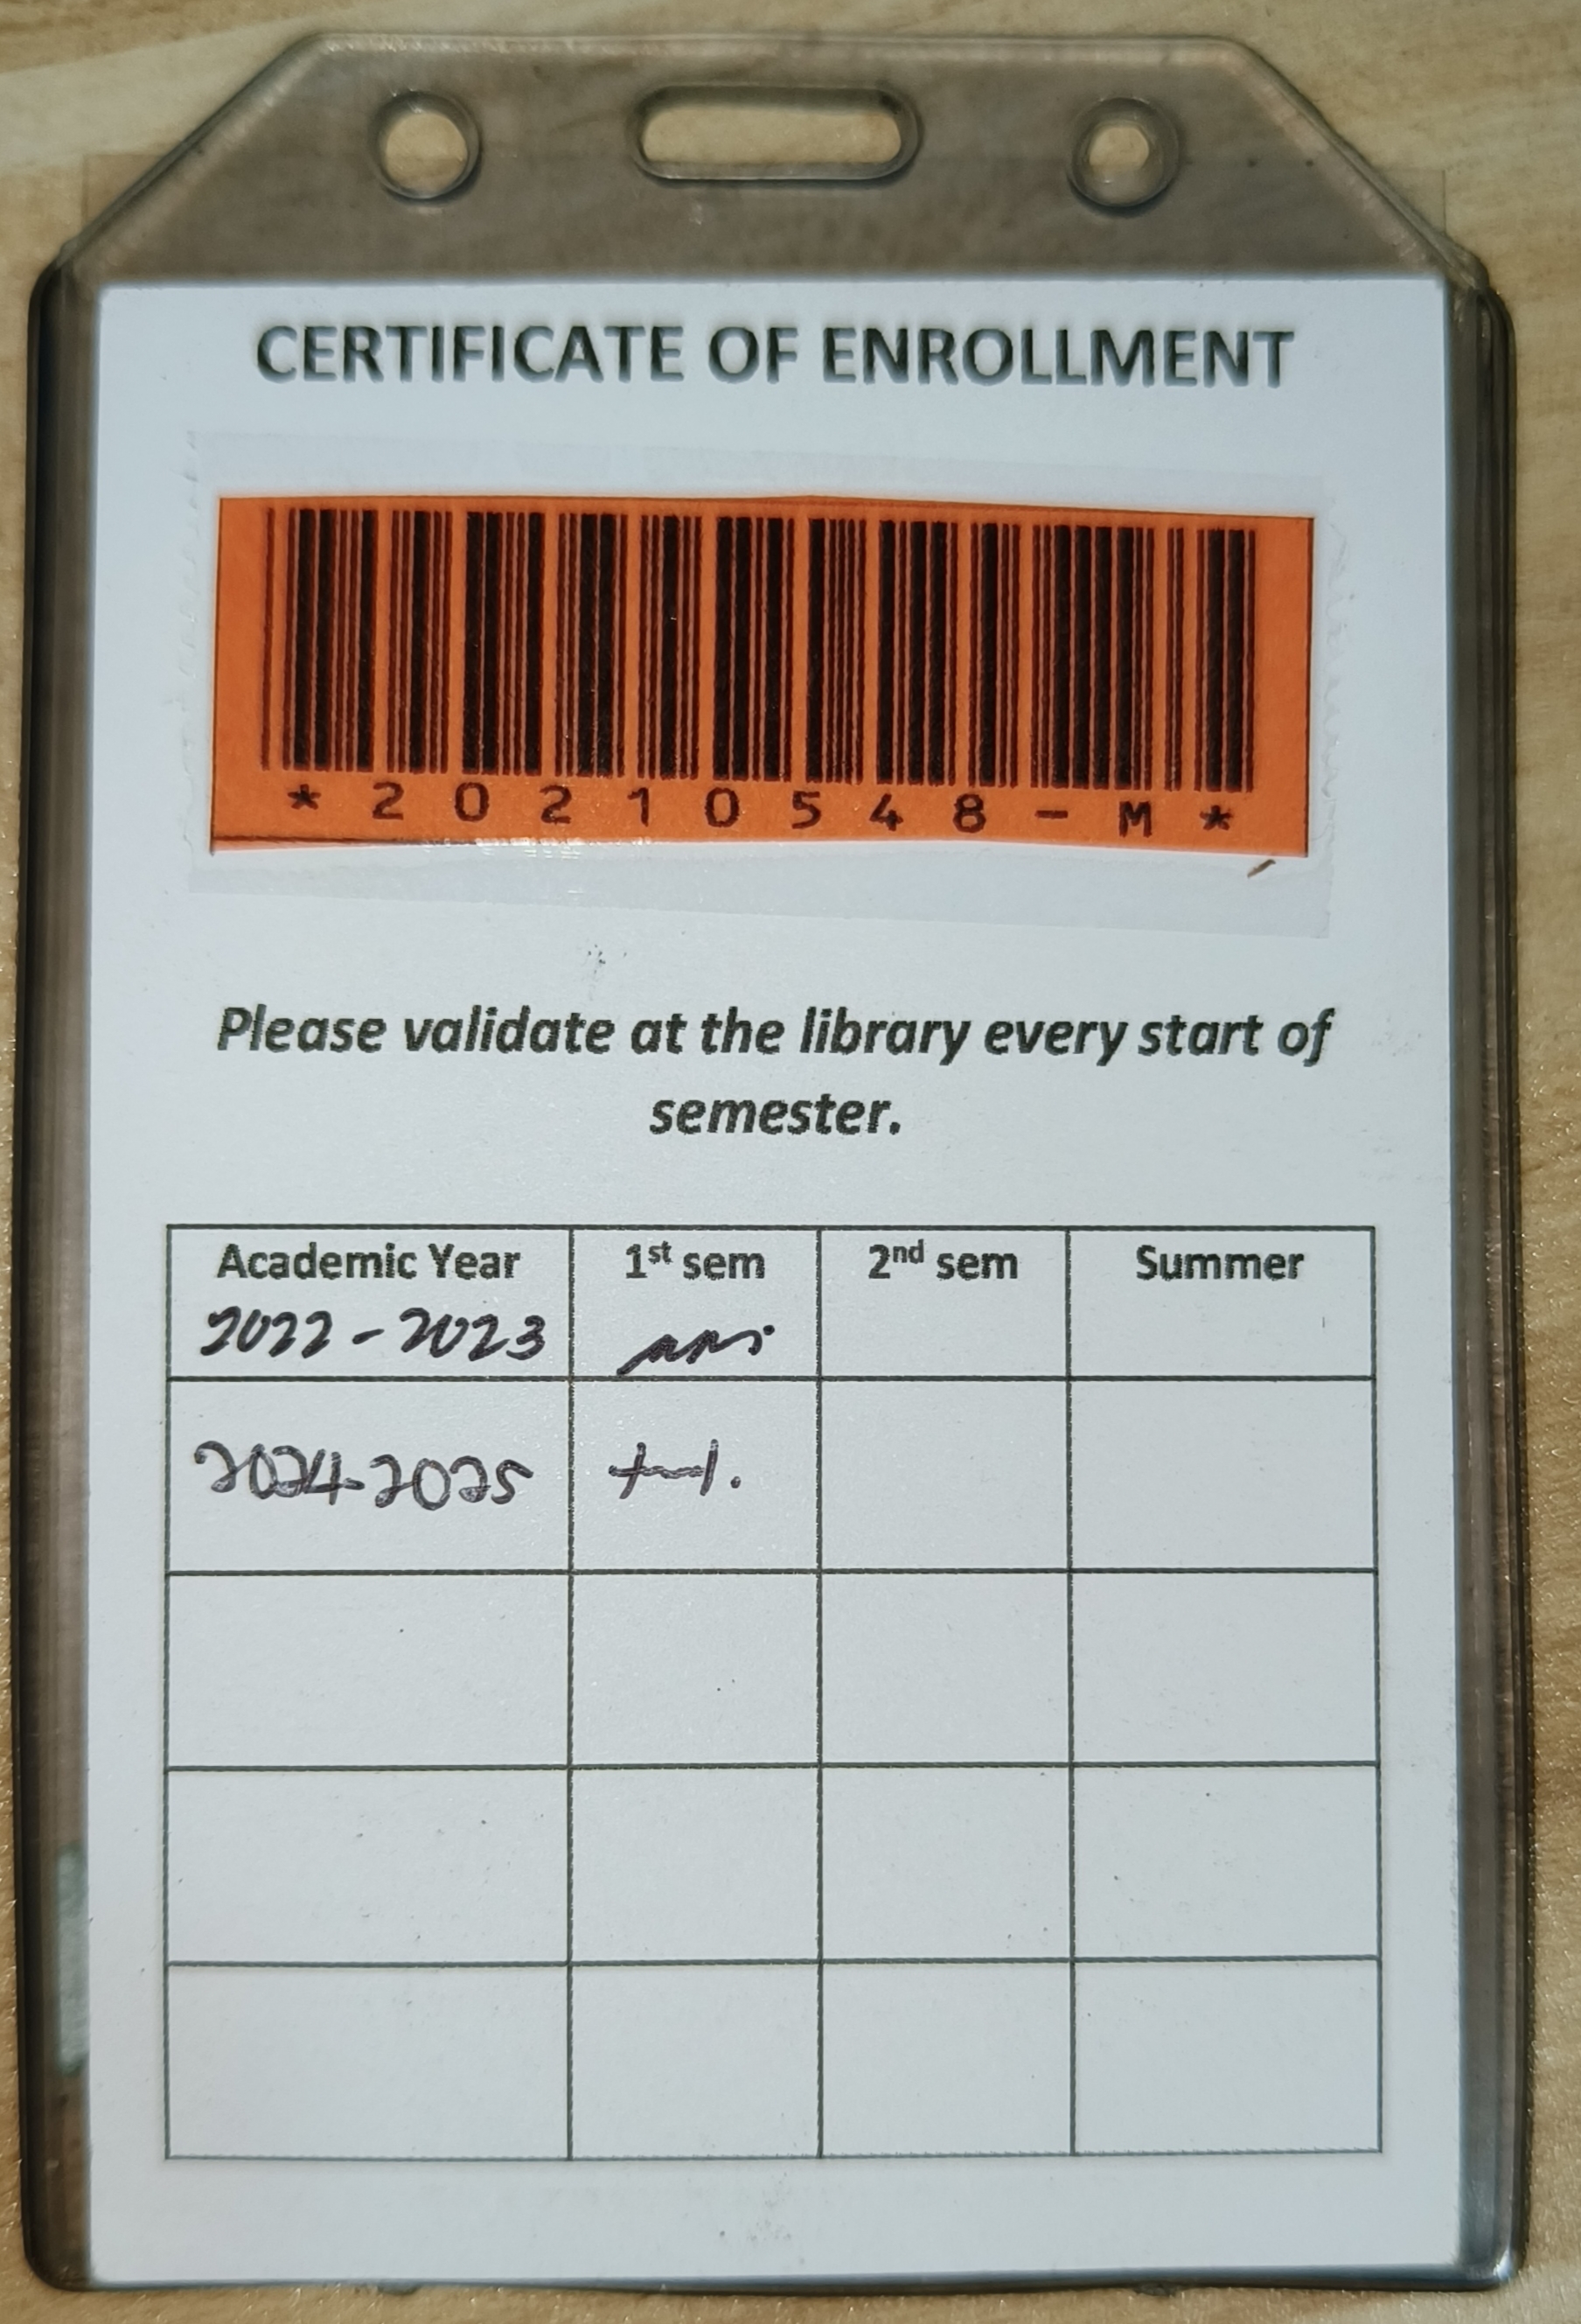 CERTIFICATE OF ENROLLMENT
*20210548-M*
Please validate at the library every start of
semester.
Academic Year 1st sem 2nd sem Summer
2022-2023
2024-2025